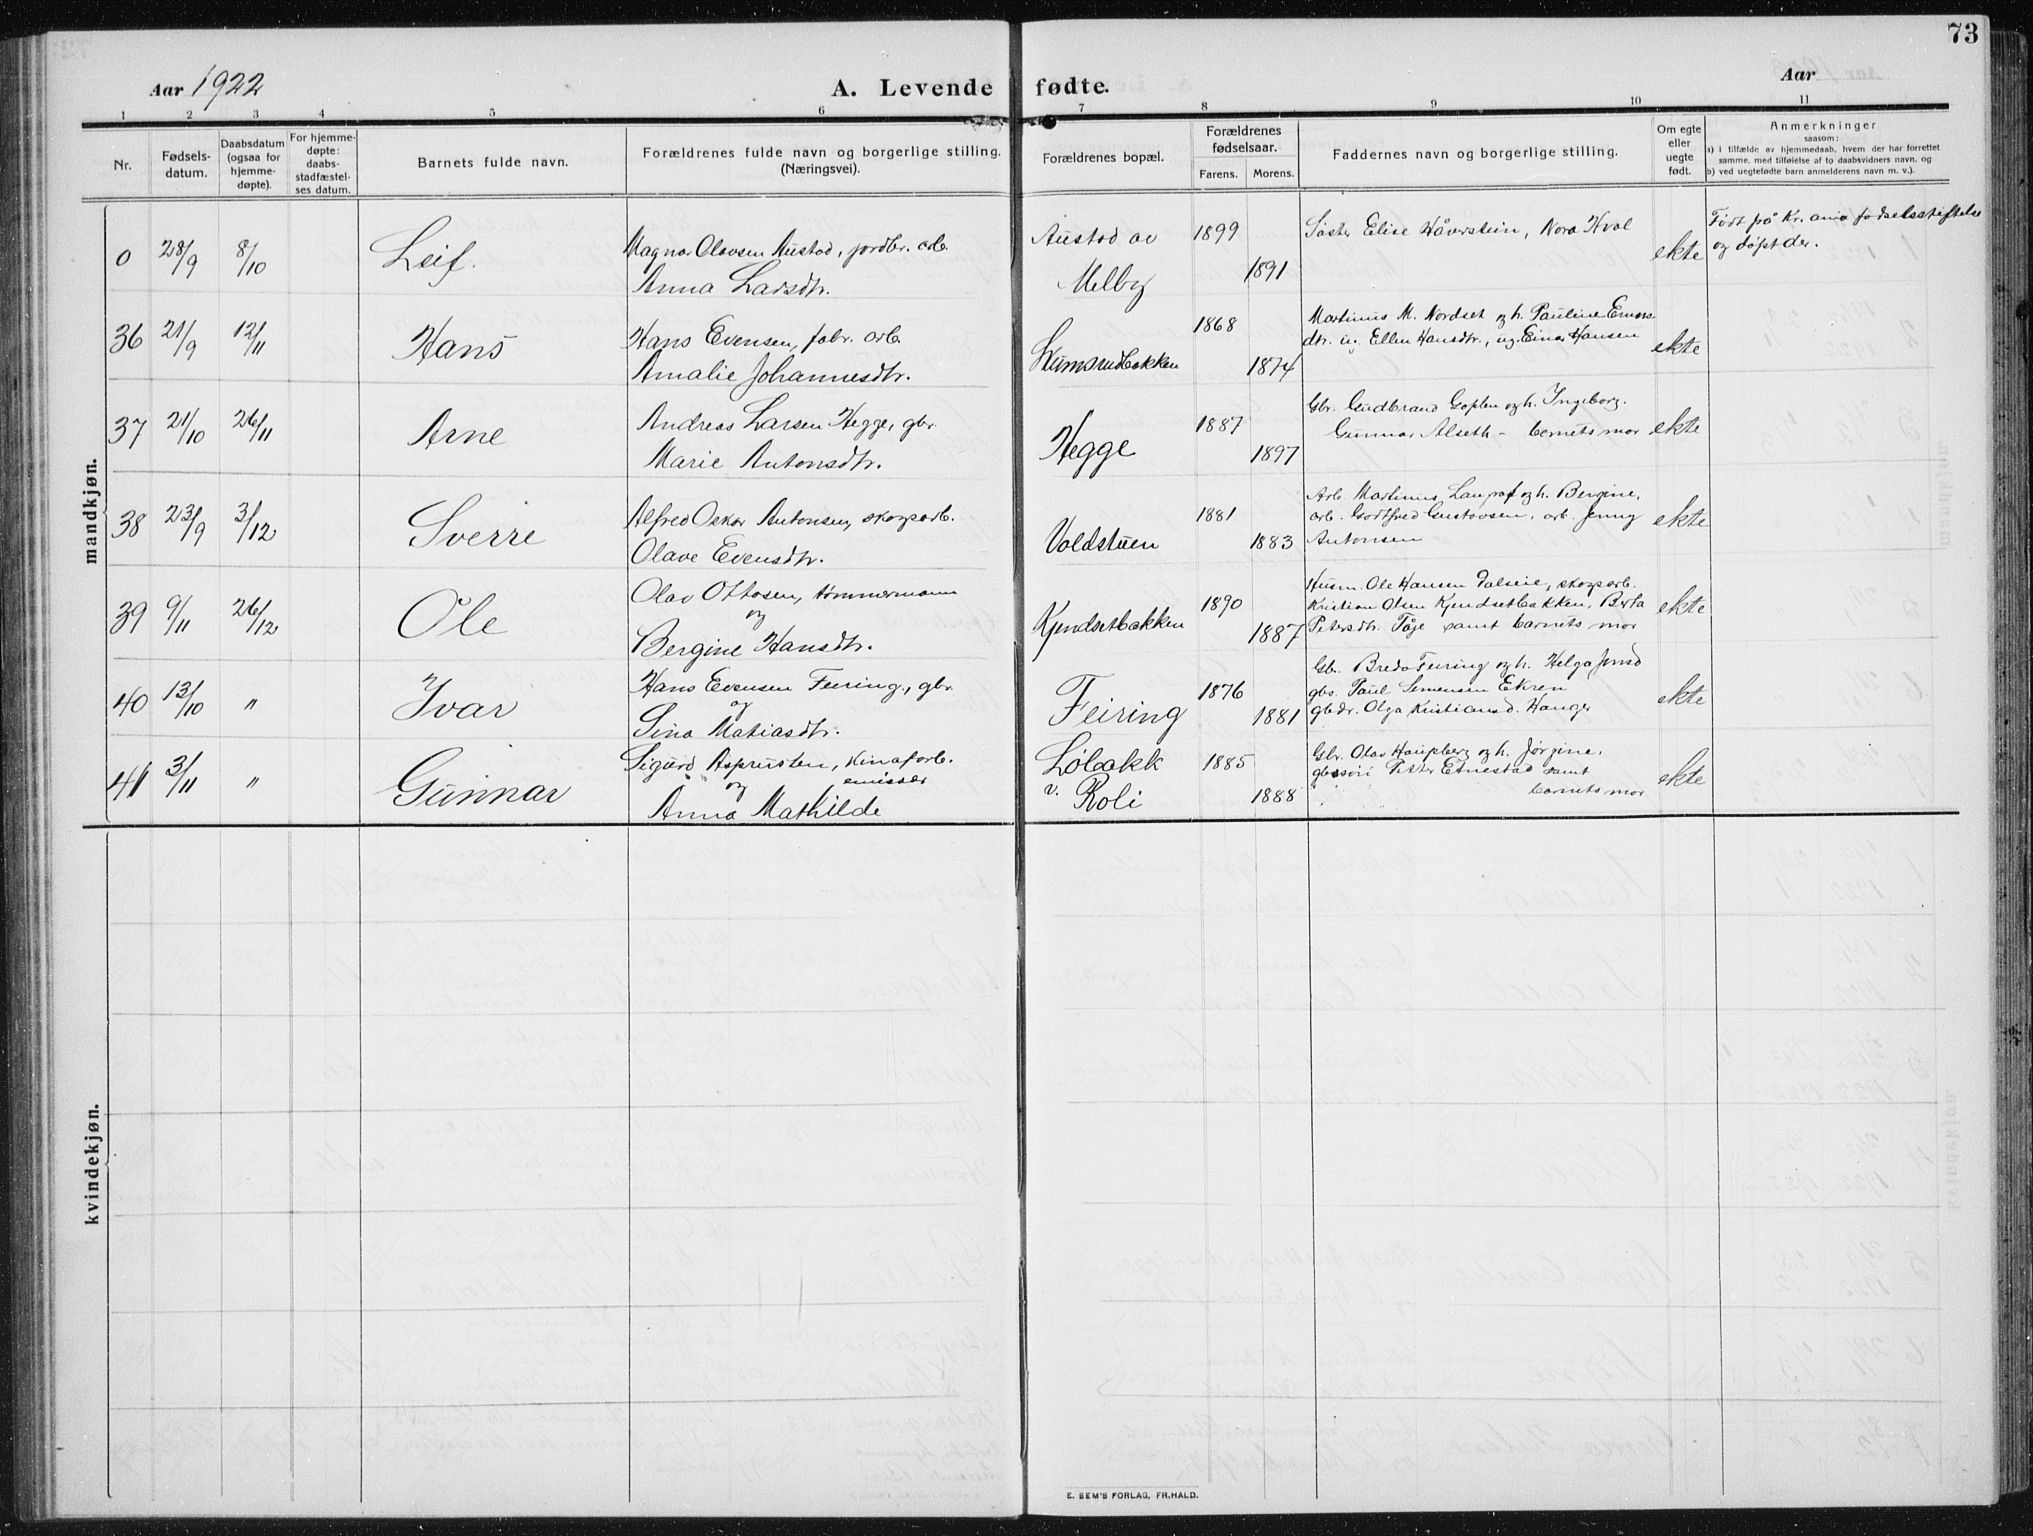 73
Aar 1922
A. Levende fødte.
Aar
1 2 3 4 5 6 7 8 9 10 11
Nr.
Fødsels-
datum.
Daabsdatum
(ogsaa for
hjemme-
døpte).
For hjemme-
døpte:
daabs-
stadfæstel-
ses datum.
Barnets fulde navn.
Forældrenes fulde navn og borgerlige stilling.
(Næringsvei).
Forældrenes bopæl.
Forældrenes
fødselsaar.
Farens. Morens.
Faddernes navn og borgerlige stilling.
Om egte
eller
uegte
født.
Anmerkninger
saasom:
a) i tilfælde av hjemmedaab, hvem der har forrettet
samme, med tilføielse af to daabsvidners navn, og
b) ved uegtefødte barn anmelderens navn m. v.).
mandkjøn.
0 28/9 8/10 Leif.
Magnar Olavsen Austad, jordbr. arb.
Anna Larsdtr.
Austad av
Melby
1899
1891
Søster Elise Håverstein, Nora Kval
ekte
Født på Kr.ania fødselsstiftelse
og døpt der.
36 21/9 12/11 Hans
Hans Evensen, fabr. arb.
Amalie Johannesdtr.
Skumsrudbakken
1868
1874
Martinus M. Nordset og h. Pauline
dtr. Ellen Hansdtr., ug. Einar Hansen
ekte
37 21/10 26/11 Arne
Andreas Larsen Hegge, gbr.
Marie Antonsdtr.
Hegge
1887
1897
Gbr. Gudbrand Goplen og h. Ingeborg.
Gunnar Alseth - barnets mor
ekte
38 23/9 3/12 Sverre
Alfred Oskar Antonsen, skogsarb.
Olave Evensdtr.
Voldstuen
1881
1883
Arb. Martinus og h. Bergine,
arb. Godtfred Gustavsen, arb. Jenny
Antonsen
ekte
39 9/11 26/12 Ole
Olav Ottosen, tømmermann
og
Bergine Hansdtr.
Kjendsetbakken
1890
1887
Husm. Ole Hansen Dalseie, skogsarb.
Kristian Olsen Kjendsetbakken, Berta
Petersdtr. Tåge samt barnets mor
ekte
40 13/10 " Ivar
Hans Evensen Feiring, gbr.
og
Sina Matiasdtr.
Feiring
1876
1881
Gb. Brede Feiring og h. Helga
gbs. Paul Simensen Ekren
gbdr. Olga Kristiansd. Hanger
ekte
41 3/11 " Gunnar
Sigurd Asprusten, Kinaforb.
emissær
og
Anna Mathilde
Løbakk
v. Roli
1885
1888
Gbr. Olav Haugsberg og h. Jørgine,
Petter Etnestad samt
barnets mor
ekte
kvindekjøn.
E. SEM'S FORLAG, FR.HALD.